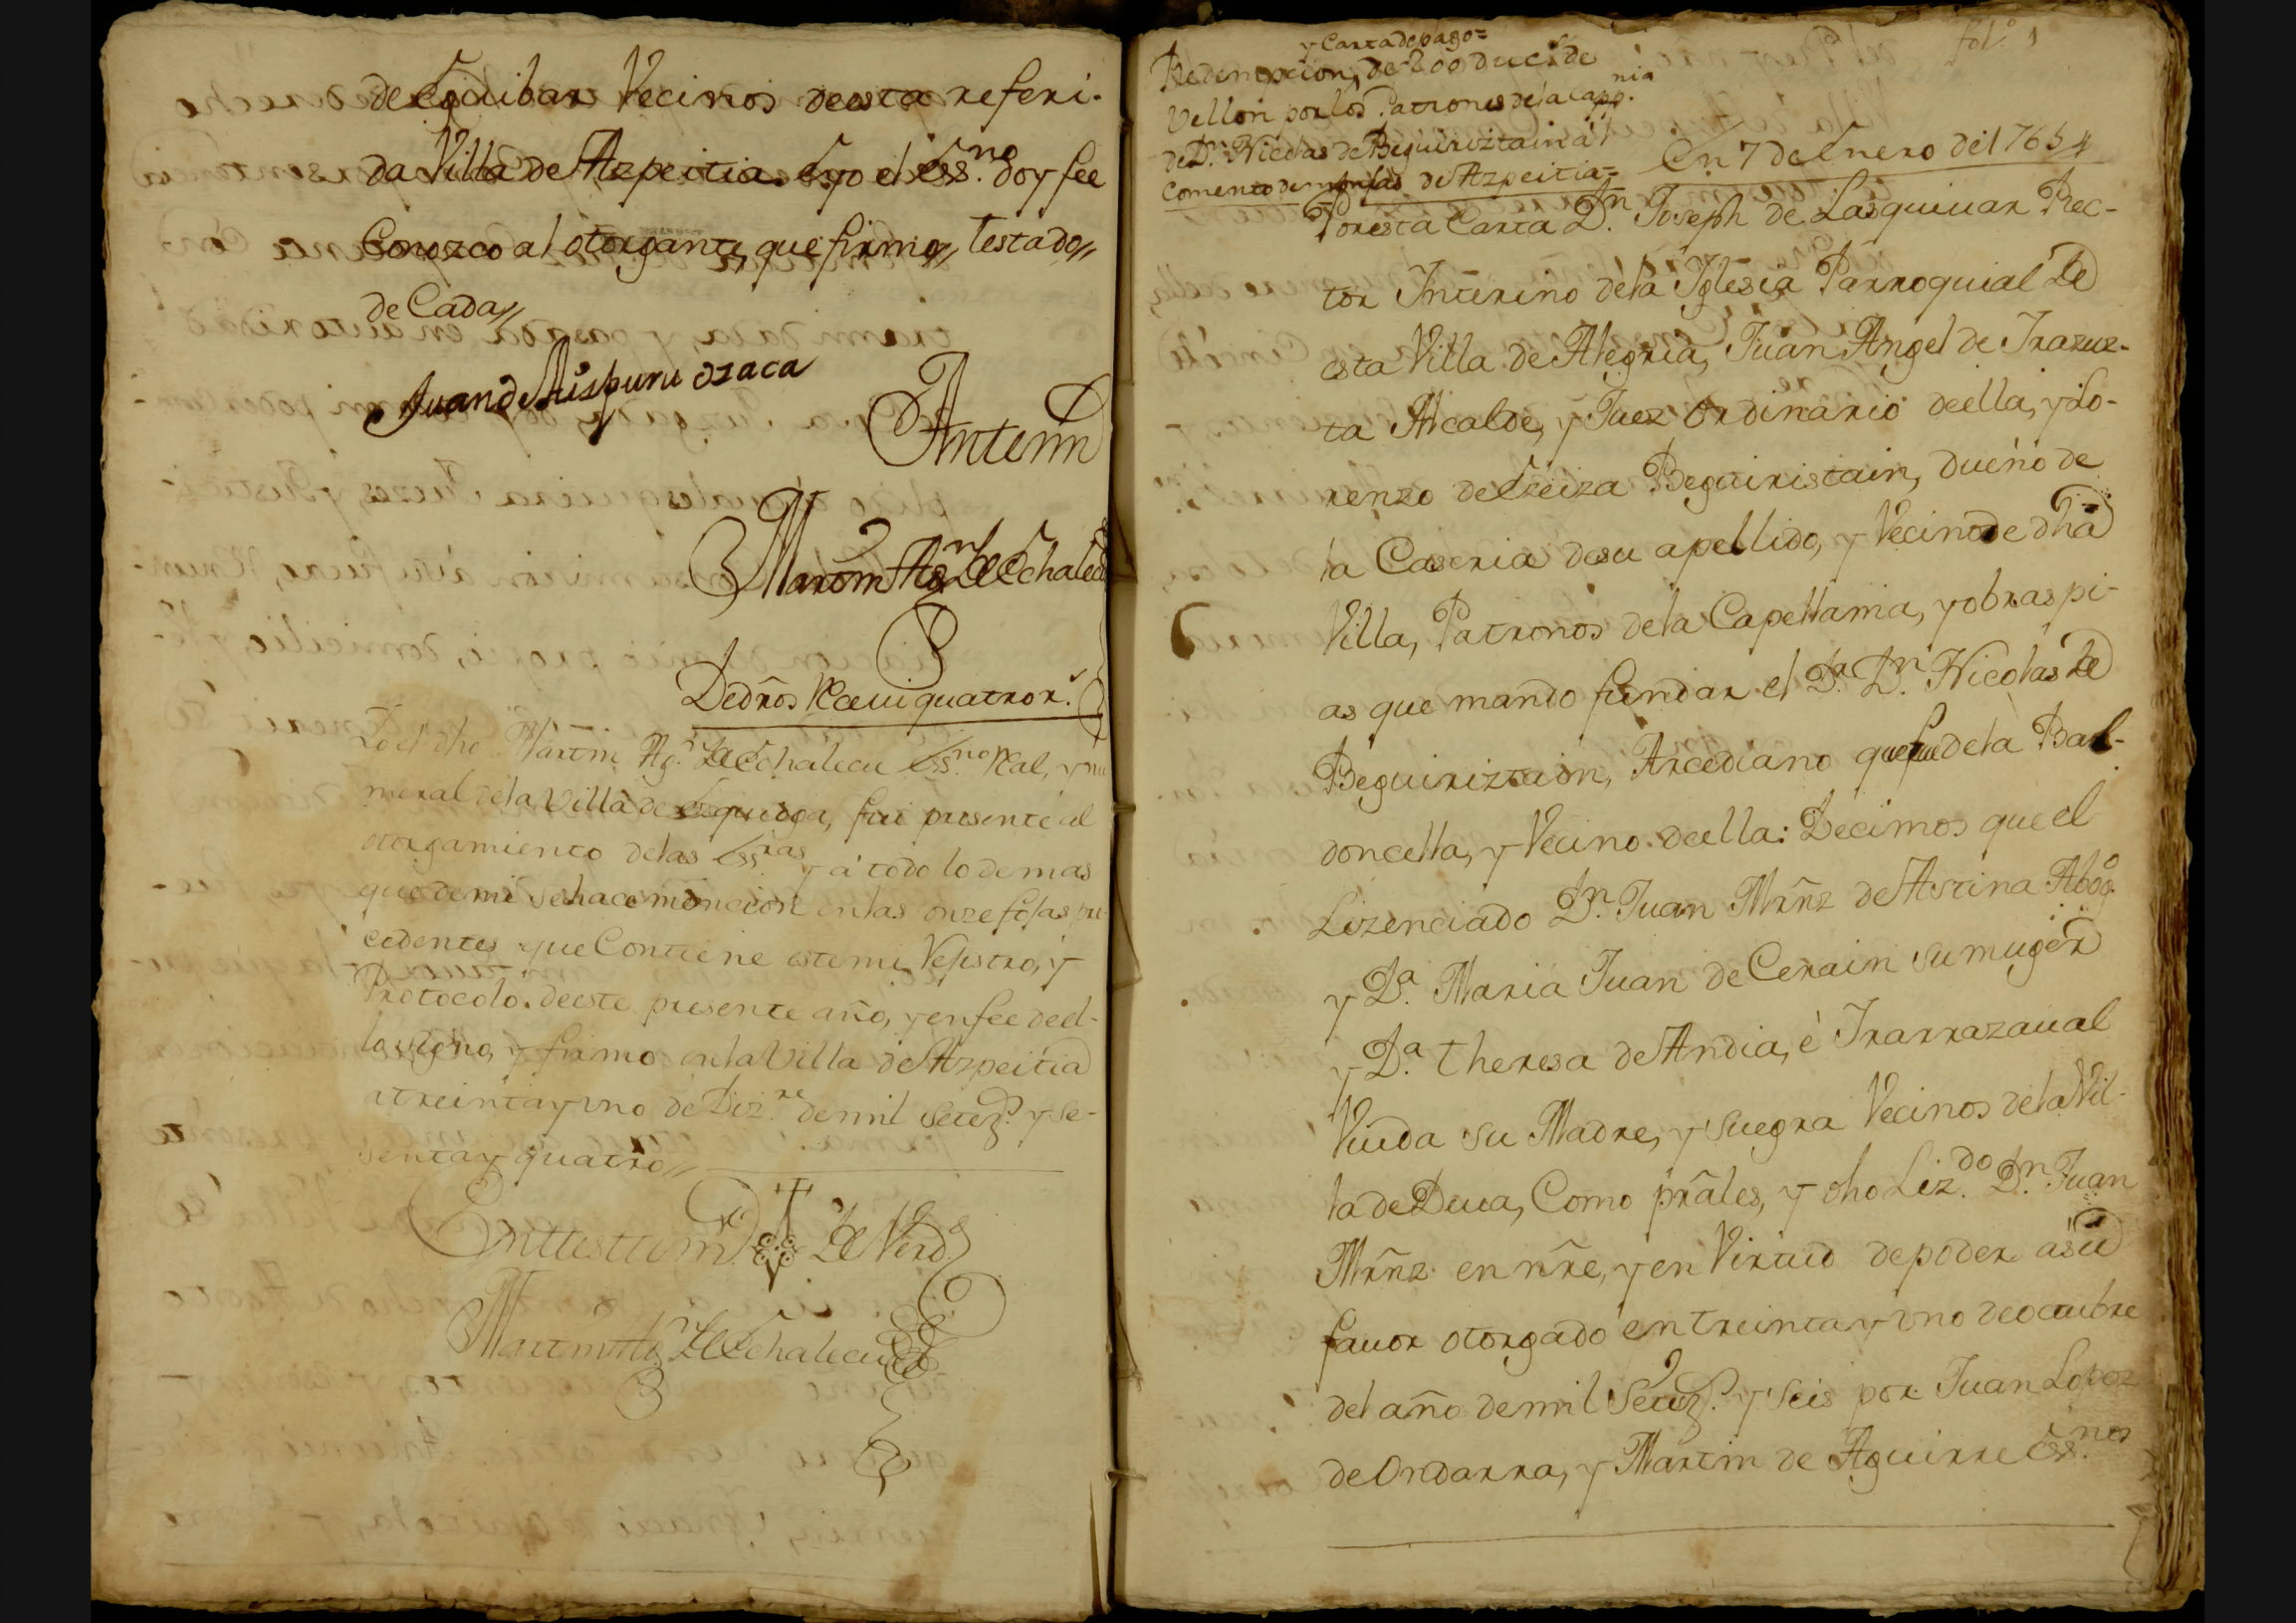 de Eguibar Vecinos deesta referi-
da Villa de Azpeitia. Eyo el ess.no doy fee
Conozco al otorgante, que firmo// Testado//
de Cada//
Juan de Aispuru ozaca
Antemi
Martin Ag.n de Echalecu
Dedr̃os Rs. quatro r.s
Yo el dho Martin Ag.n de Echalecu Ess.no Real, y nu
meral dela Villa de Ezquioga, fui presente al
otorgamiento delas Ess.ras y a todo lo demas
que demi sehace moncion enlas onze fojas pre
cedentes que Contiene estemi Rejistro, y
Protocolo. deeste presente año, y enfee deel-
lo signo, y firmo enla Villa de Azpeitia
a treinta y vno de Diz.re demil setez.s y se-
senta y quatro//
Enttesttim.o de Verd.
Martin Ag.n de Echalecu
fol.o 1
y Carta de pago=
Redempcion, de 200 duc.s de
Vellon por los Patronos dela Capp.nia
de D.n Nicolas de Beguiriztain a'l
Comento de monjas de Azpeitia=
En 7 de Enero del 1765 4
Por esta Carta D.n Joseph de Lasquiuar Rec-
tor Interino dela Iglesia Parroquial de
esta Villa de Alegria, Juan Angel de Irazuz-
ta Alcalde, y Juez ordinario deella, y Lo-
renzo de Ezeiza Beguiristain, dueño de
la Caseria desu apellido, y Vecino de dha
Villa, Patronos dela Capellania, y obras pi-
as que mando fundar el D.r D.n Nicolas de
Beguiriztain, Arcediano que fue dela Bal-
doncella, y Vecino deella: Decimos que el
Lizenciado D.n Juan Mrñz de Astina Abog.o
y D.a Maria Juan de Cerain su muger
y D.a Theresa de Andia, è Irarrazaual
Viuda su Madre, y suegra Vecinos dela Vil-
la de Deua, Como prãles, y dho Liz.do D.n Juan
Mrñz en nr̃e, y en Virtud de poder asu
fauor otorgado en treinta y vno de octubre
del año demil Setez.s y seis por Juan Lopez
de Ondarra, y Martin de Aguirre Ess.nos